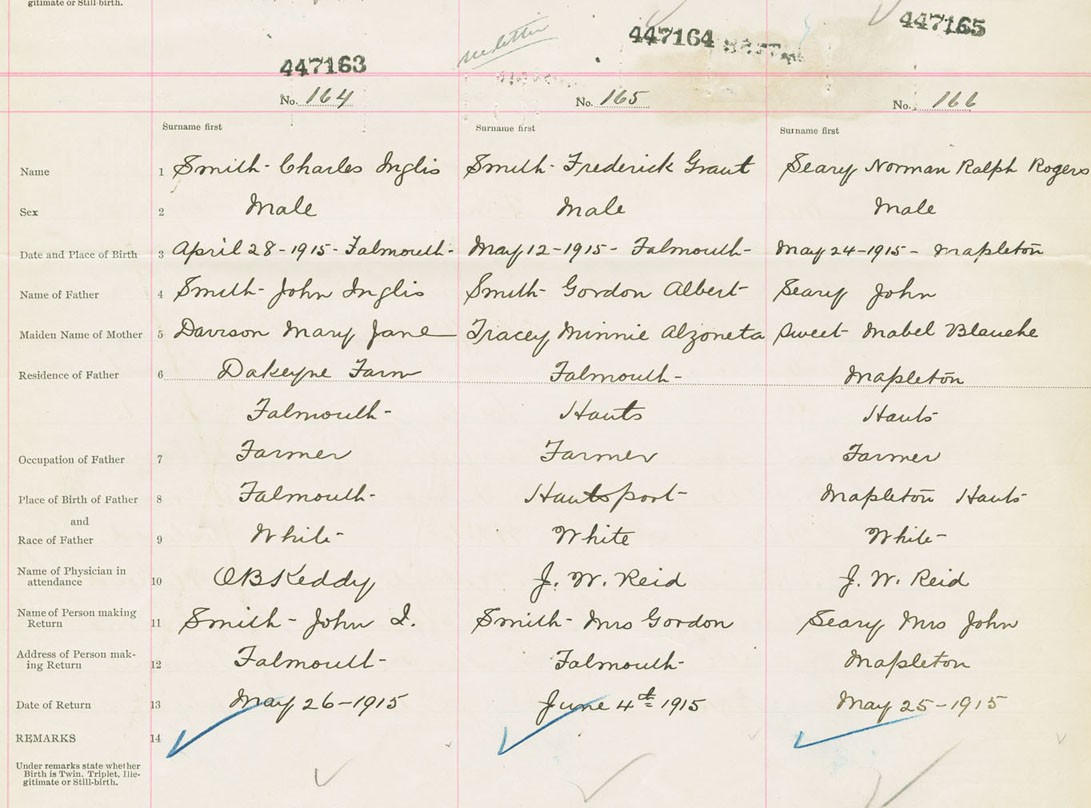 gitimate or Still-birth.
447163
447164
447165
No. 164
No. 165
No. 166
Surname first Surname first Surname first
Name 1 Smith - Charles Inglis Smith - Frederick Grant Seary Norman Ralph Rogers
Sex 2 Male Male Male
Date and Place of Birth 3 April 28-1915- Falmouth- May 12-1915- Falmouth- May 24-1915- Mapleton
Name of Father 4 Smith- John Inglis Smith- Gordon Albert Seary John
Maiden Name of Mother 5 Davison Mary Jane Tracey Minnie Alzoneta Sweet Mabel Blanche
Residence of Father 6 Dakeyne Farm Falmouth- Mapleton
Falmouth- Hants Hants
Occupation of Father 7 Farmer Farmer Farmer
Place of Birth of Father 8 Falmouth- Hantsport- Mapleton Hants
and
Race of Father 9 White- White White-
Name of Physician in
attendance 10 OB Keddy J. W. Reid J. W. Reid
Name of Person making
Return 11 Smith- John I. Smith- Mrs Gordon Seary Mrs John
Address of Person mak-
ing Return 12 Falmouth- Falmouth- Mapleton
Date of Return 13 May 26-1915 June 4th 1915 May 25-1915
REMARKS 14
Under remarks state whether
Birth is Twin, Triplet, Ille-
gitimate or Still-birth.